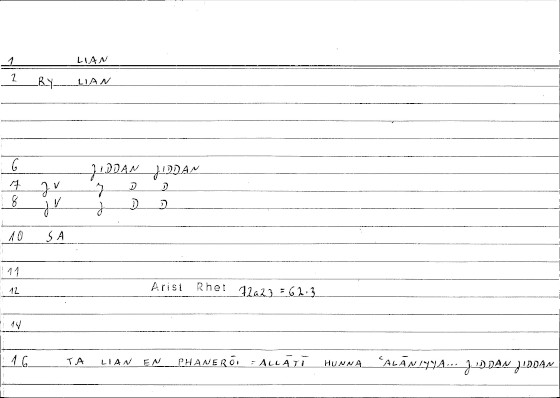 1 LIAN
2 RY LIAN
6 ɈIDDAN ɈIDDAN
7 ɈV Ɉ D D
8 ɈV Ɉ D D
10 SA
11
12 Arist Rhet 72a23 = 62.3
14
16 TA LIAN EN PHANERŌI = ALLĀTĪ HUNNA ʿALĀNIYYA... ɈIDDAN ɈIDDAN